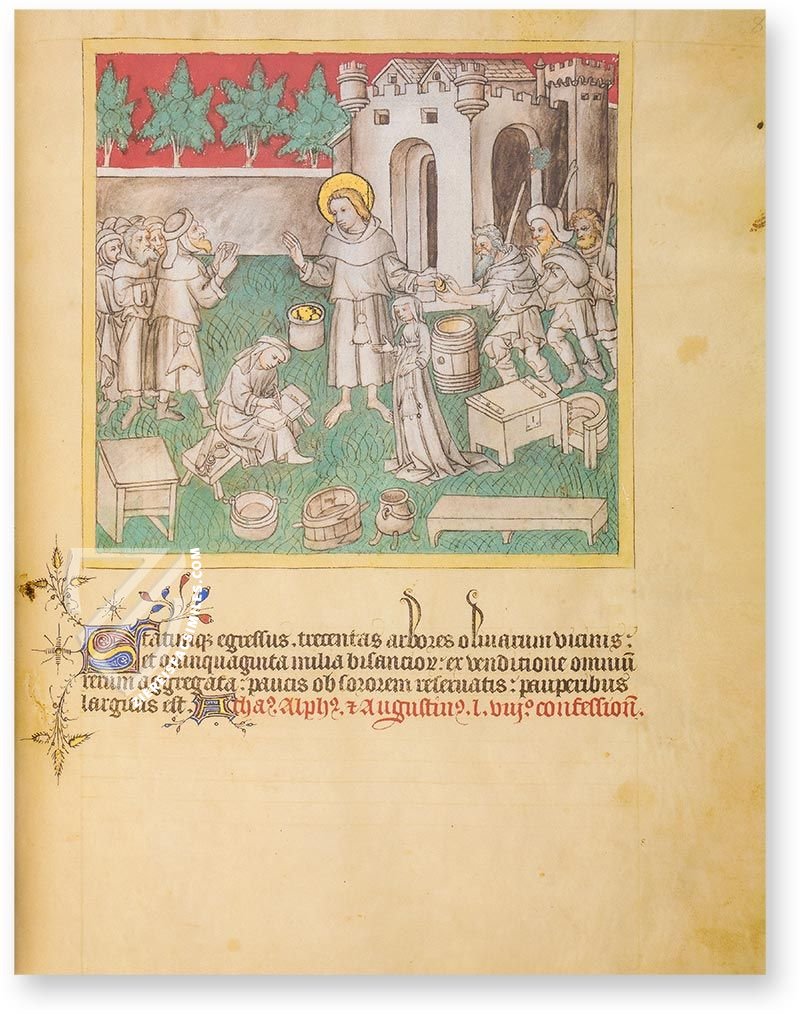 Statimq; egressus. trecentas arbores olivarum vicinis:
et quinquaginta milia bisancioꝝ: ex venditione omniū
rerum aggregata: paucis ob sororem reservatis: pauperibus
largitus est. Athaꝰ. Alphꝰ. ⁊ Augustinꝰ. l. viijꝰ. confession̄.